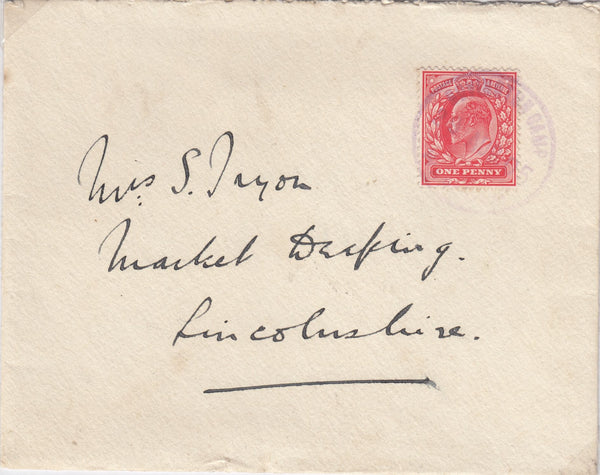 POSTAGE & REVENUE
CAMP
ONE PENNY
Mrs S. Tryon
Market Deeping.
Lincolnshire.